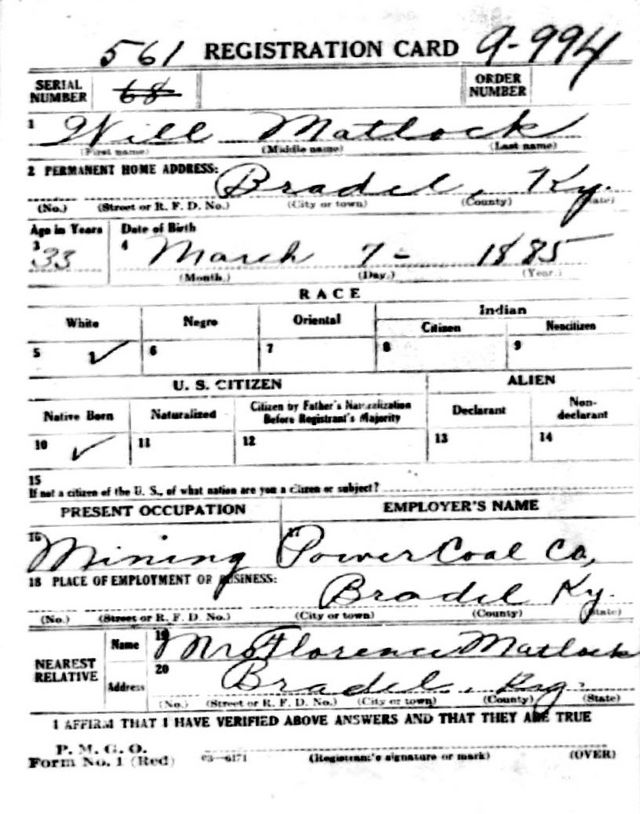 561 REGISTRATION CARD 9-994
SERIAL NUMBER 68 ORDER NUMBER
1 Will Matlock
(First name) (Middle name) (Last name)
2 PERMANENT HOME ADDRESS: Bradel, Ky.
(No.) (Street or R. F. D. No.) (City or town) (County) (State)
Age in Years Date of Birth
3 33 4 March 7- 1885
(Month.) (Day.) (Year.)
RACE
White Negro Oriental Indian
Citizen Noncitizen
5 ✓ 6 7 8 9
U. S. CITIZEN ALIEN
Native Born Naturalized Citizen by Father's Naturalization Before Registrant's Majority Declarant Non-declarant
10 ✓ 11 12 13 14
15
If not a citizen of the U. S., of what nation are you a citizen or subject?
PRESENT OCCUPATION EMPLOYER'S NAME
16 Mining Power Coal Co,
18 PLACE OF EMPLOYMENT OR BUSINESS: Bradel Ky.
(No.) (Street or R. F. D. No.) (City or town) (County) (State)
NEAREST RELATIVE Name 19 Mrs Florence Matlock
Address 20 Bradel, Ky.
(No.) (Street or R. F. D. No.) (City or town) (County) (State)
I AFFIRM THAT I HAVE VERIFIED ABOVE ANSWERS AND THAT THEY ARE TRUE
P. M. G. O.
Form No. 1 (Red) 03-6171 (Registrant's signature or mark) (OVER)